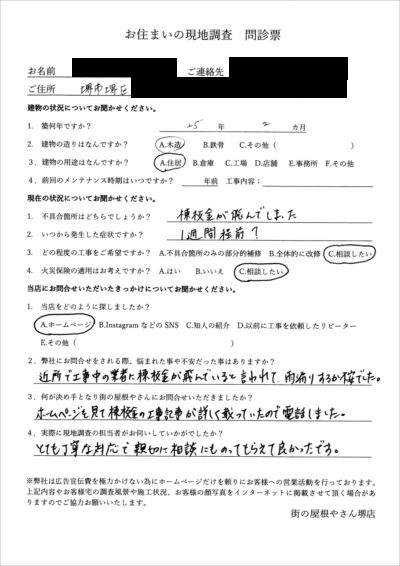 お住まいの現地調査　問診票
お名前　ご連絡先
ご住所　堺市堺区
建物の状況についてお聞かせください。
1．築何年ですか？　25　年　2　カ月
2．建物の造りはなんですか？　A.木造　B.鉄骨　C.その他（　　）
3．建物の用途はなんですか？　A.住居　B.倉庫　C.工場　D.店舗　E.事務所　F.その他
4．前回のメンテナンス時期はいつですか？　年前　工事内容：
現在の状況についてお聞かせください。
1．不具合箇所はどちらでしょうか？　棟板金が飛んでしまった
2．いつから発生した症状ですか？　1週間程前？
3．どの程度の工事をご希望ですか？　A.不具合箇所のみの部分的補修　B.全体的に改修　C.相談したい
4．火災保険の適用はお考えですか？　A.はい　B.いいえ　C.相談したい
当店にお問合せいただいたきっかけについてお聞かせください。
1．当店をどのように探しましたか？
A.ホームページ　B.Instagram などの SNS　C.知人の紹介　D.以前に工事を依頼したリピーター
E.その他（　　）
2．弊社にお問合せをされる際、悩まれた事や不安だった事はありますか？
近所で工事中の業者に棟板金が飛んでいると言われて、雨漏りするか不安でした。
3．何が決め手となり街の屋根やさんにお問合せいただきましたか？
ホームページを見て棟板金の工事記事が詳しく載っていたので電話しました。
4．実際に現地調査の担当者がお伺いしていかがでしたか？
とても丁寧な対応で親切に相談にものってもらえて良かったです。
※弊社は広告宣伝費を極力かけない為にホームページだけを頼りにお客様への営業活動を行っております。
上記内容やお客様宅の調査風景や施工状況、お客様の顔写真をインターネットに掲載させて頂く場合があ
りますのでご協力お願いいたします。
街の屋根やさん堺店